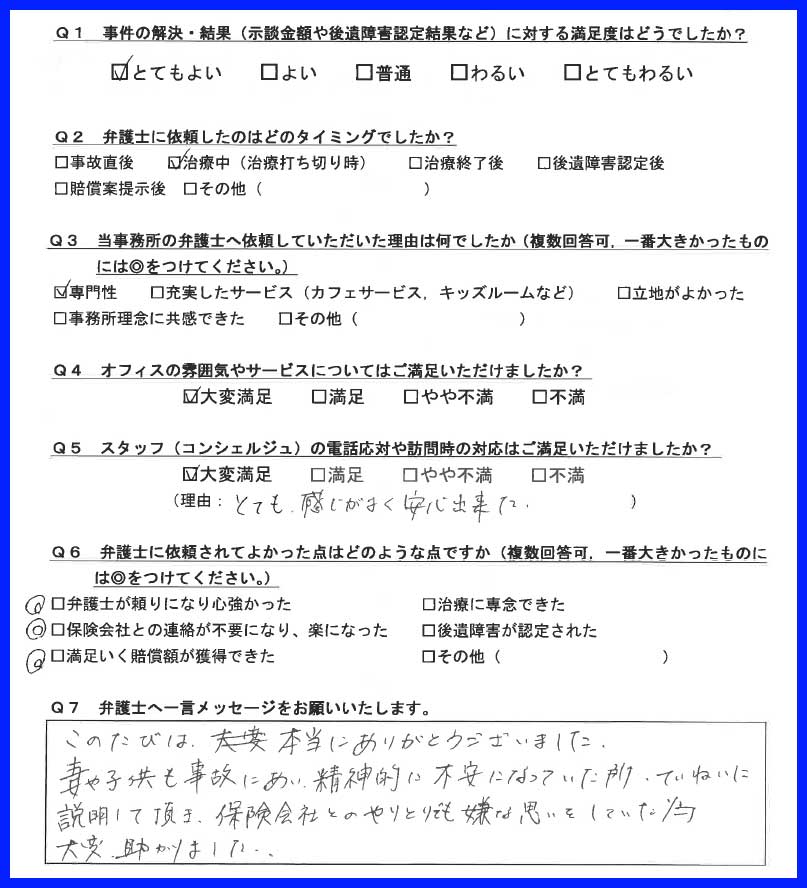 Ｑ１　事件の解決・結果（示談金額や後遺障害認定結果など）に対する満足度はどうでしたか？
☑とてもよい　□よい　□普通　□わるい　□とてもわるい
Ｑ２　弁護士に依頼したのはどのタイミングでしたか？
□事故直後　☑治療中（治療打ち切り時）　□治療終了後　□後遺障害認定後
□賠償案提示後　□その他（　　　）
Ｑ３　当事務所の弁護士へ依頼していただいた理由は何でしたか（複数回答可，一番大きかったもの
には◎をつけてください。）
☑専門性　□充実したサービス（カフェサービス，キッズルームなど）　□立地がよかった
□事務所理念に共感できた　□その他（　　　）
Ｑ４　オフィスの雰囲気やサービスについてはご満足いただけましたか？
☑大変満足　□満足　□やや不満　□不満
Ｑ５　スタッフ（コンシェルジュ）の電話応対や訪問時の対応はご満足いただけましたか？
☑大変満足　□満足　□やや不満　□不満
（理由：とても、感じがよく安心出来た.　）
Ｑ６　弁護士に依頼されてよかった点はどのような点ですか（複数回答可，一番大きかったものに
は◎をつけてください。）
◎□弁護士が頼りになり心強かった　□治療に専念できた
◎□保険会社との連絡が不要になり、楽になった　□後遺障害が認定された
◎□満足いく賠償額が獲得できた　□その他（　　　）
Ｑ７　弁護士へ一言メッセージをお願いいたします。
このたびは、本当にありがとうございました.
妻や子供も事故にあい、精神的に不安になっていた所、ていねいに
説明して頂き、保険会社とのやりとりでも嫌な思いをしていた
大変、助かりました..